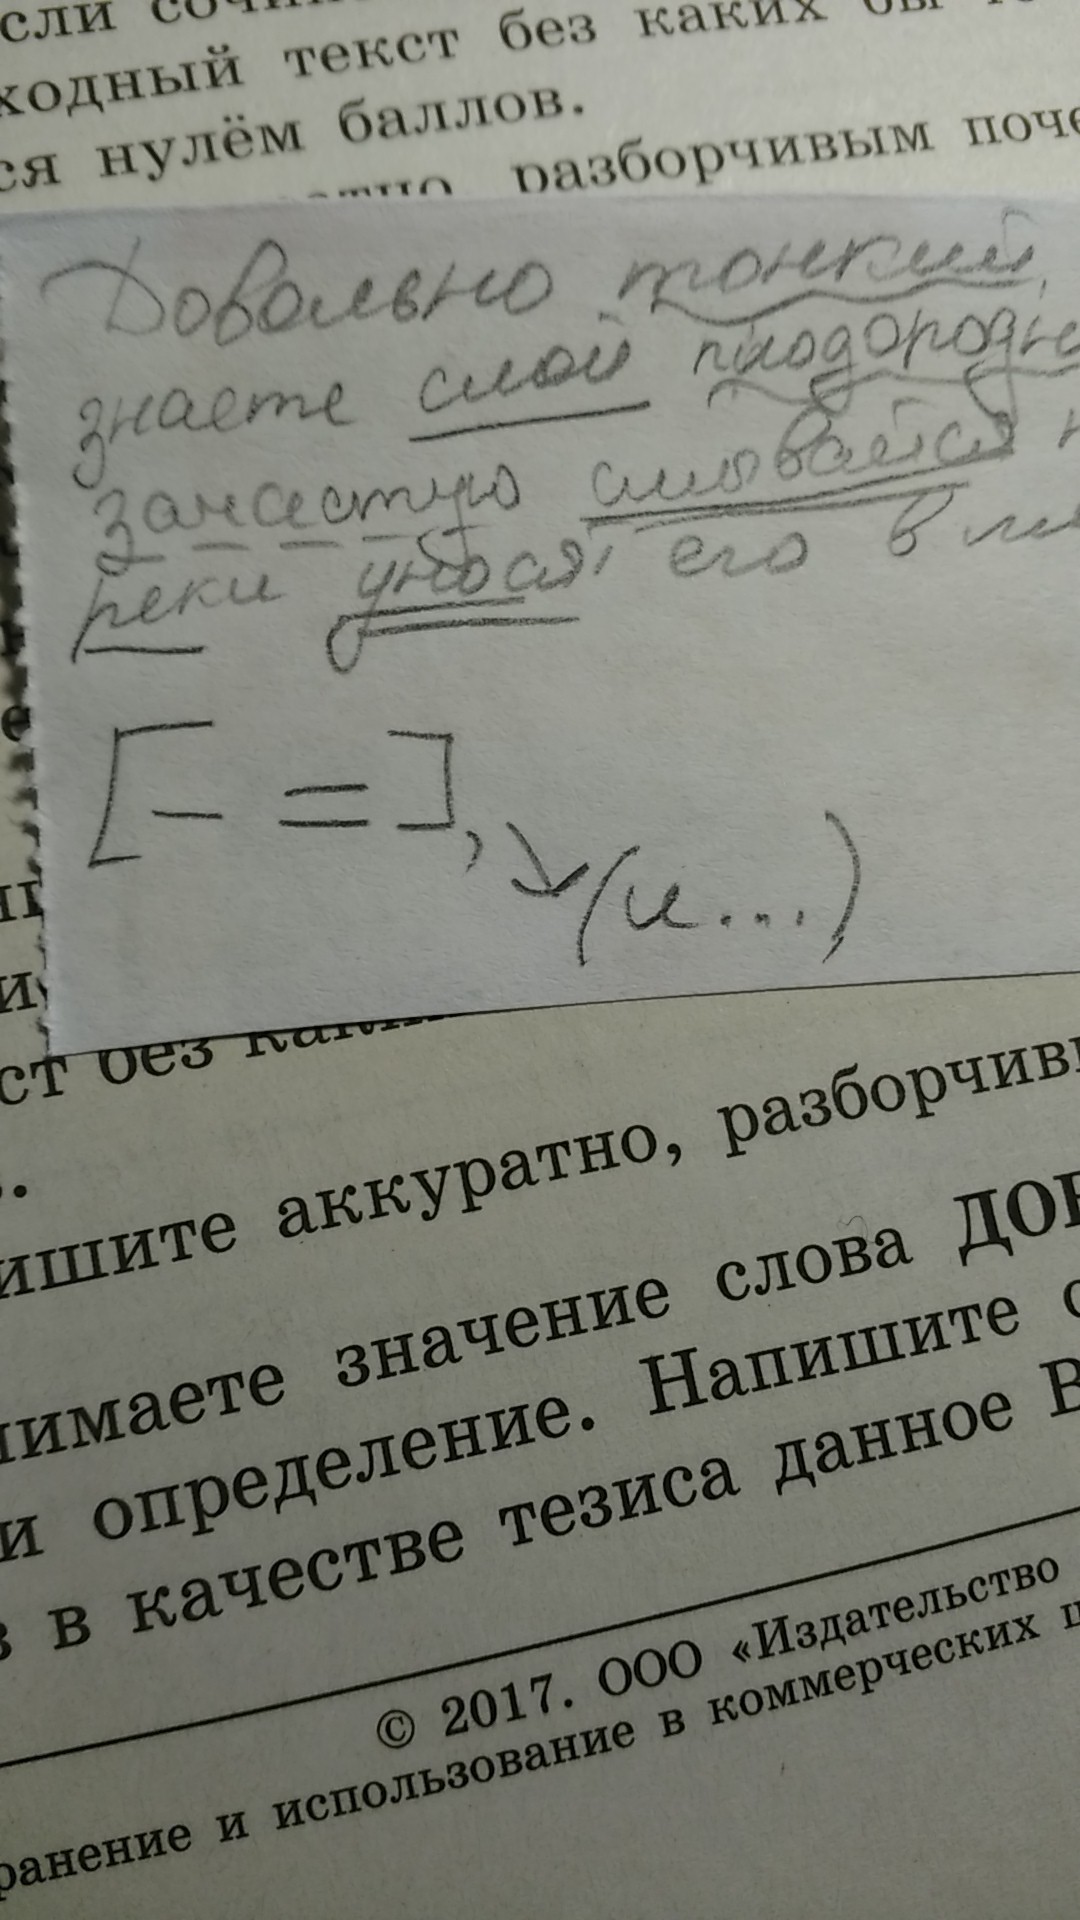 сли сочин
ходный текст без каких бы т
ся нулём баллов.
разборчивым поче
Довольно тонкий,
знаете слой плодородн
зачастую смывается н
реки унося, его в
[– =], (и...)
ст без каких
ишите аккуратно, разборчивы
нимаете значение слова ДОБ
и определение. Напишите с
в в качестве тезиса данное В
© 2017. ООО «Издательство
ранение и использование в коммерческих ц